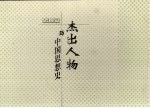 杰出人物
与
中国思想史